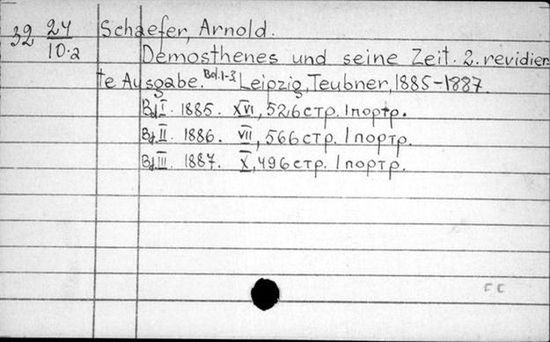 32 24 Schaefer, Arnold.
10.2 Demosthenes und seine Zeit. 2. revidier-
te Ausgabe. Bd.1-3 Leipzig, Teubner, 1885-1887.
Bd. I. 1885. XVI, 526 стр. 1 портр.
Bd. II. 1886. VII, 566 стр. 1 портр.
Bd. III. 1887. X, 496 стр. 1 портр.